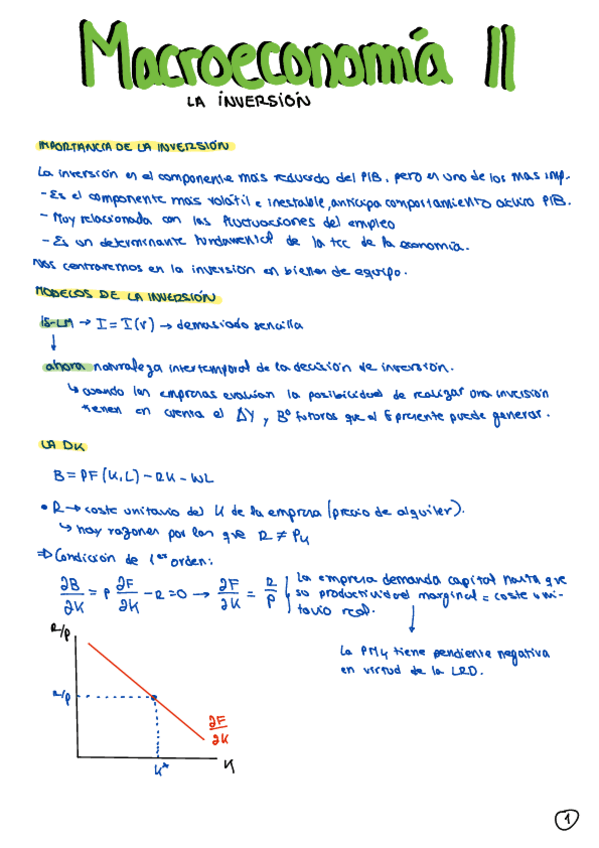 Macroeconomía II
LA INVERSIÓN
IMPORTANCIA DE LA INVERSIÓN
La inversión es el componente más reducido del PIB, pero es uno de los más imp.
- Es el componente más volátil e inestable, anticipa comportamiento futuro PIB.
- Muy relacionada con las fluctuaciones del empleo
- Es un determinante fundamental de la tcc de la economía.
Nos centraremos en la inversión en bienes de equipo.
MODELOS DE LA INVERSIÓN
IS-LM → I = I(r) → demasiado sencilla
↓
ahora naturaleza intertemporal de la decisión de inversión.
↳ cuando las empresas evalúan la posibilidad de realizar una inversión
tienen en cuenta el ΔY y Bº futuros que el G presente puede generar.
LA DK
B = PF(K,L) - RK - WL
• R → coste unitario del K de la empresa (precio de alquiler).
↳ hay razones por las que R ≠ Pk
⇒ Condición de 1er orden:
∂B/∂K = P ∂F/∂K - R = 0 → ∂F/∂K = R/P
La empresa demanda capital hasta que
su productividad marginal = coste uni-
tario real.
↓
La PMk tiene pendiente negativa
en virtud de la LRD.
R/P
R/P
∂F/∂K
K*
K
1